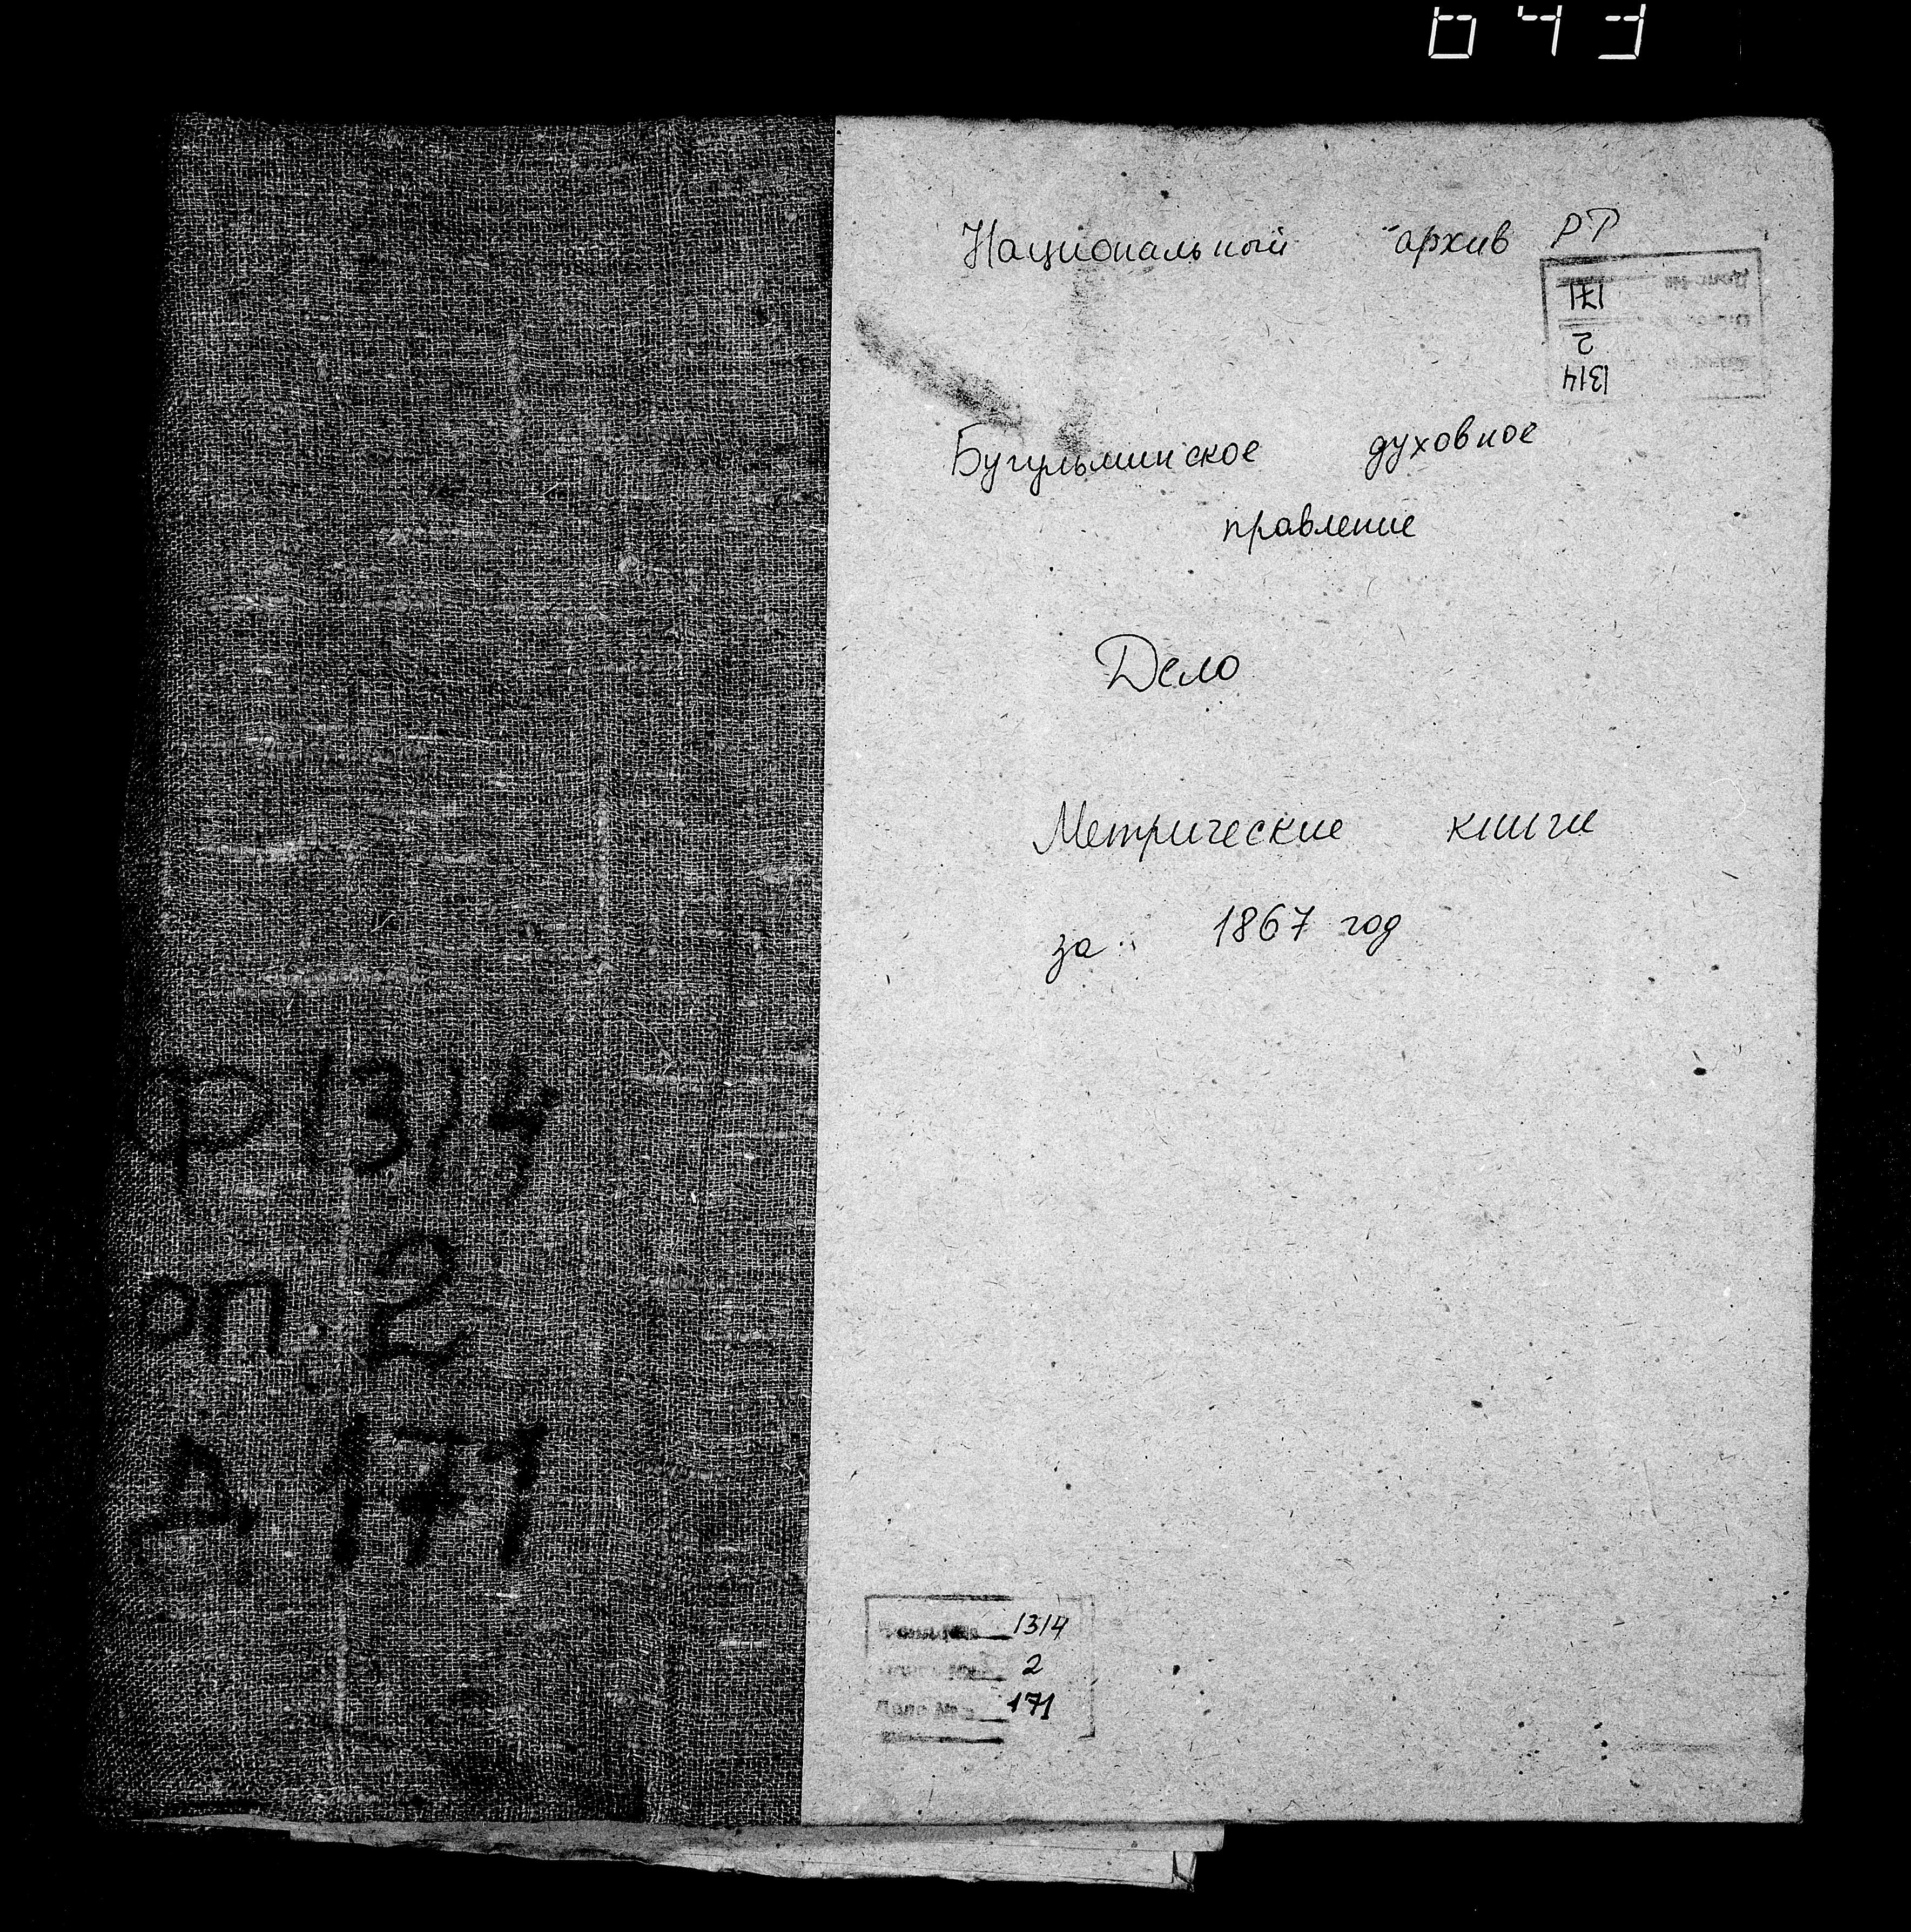 Национальный архив РТ
171
2
1314
Бугульминское духовное
правление
Дело
Метрические книги
за 1867 год
ф 1314
оп. 2
Д 171
1314
2
Дело № 171